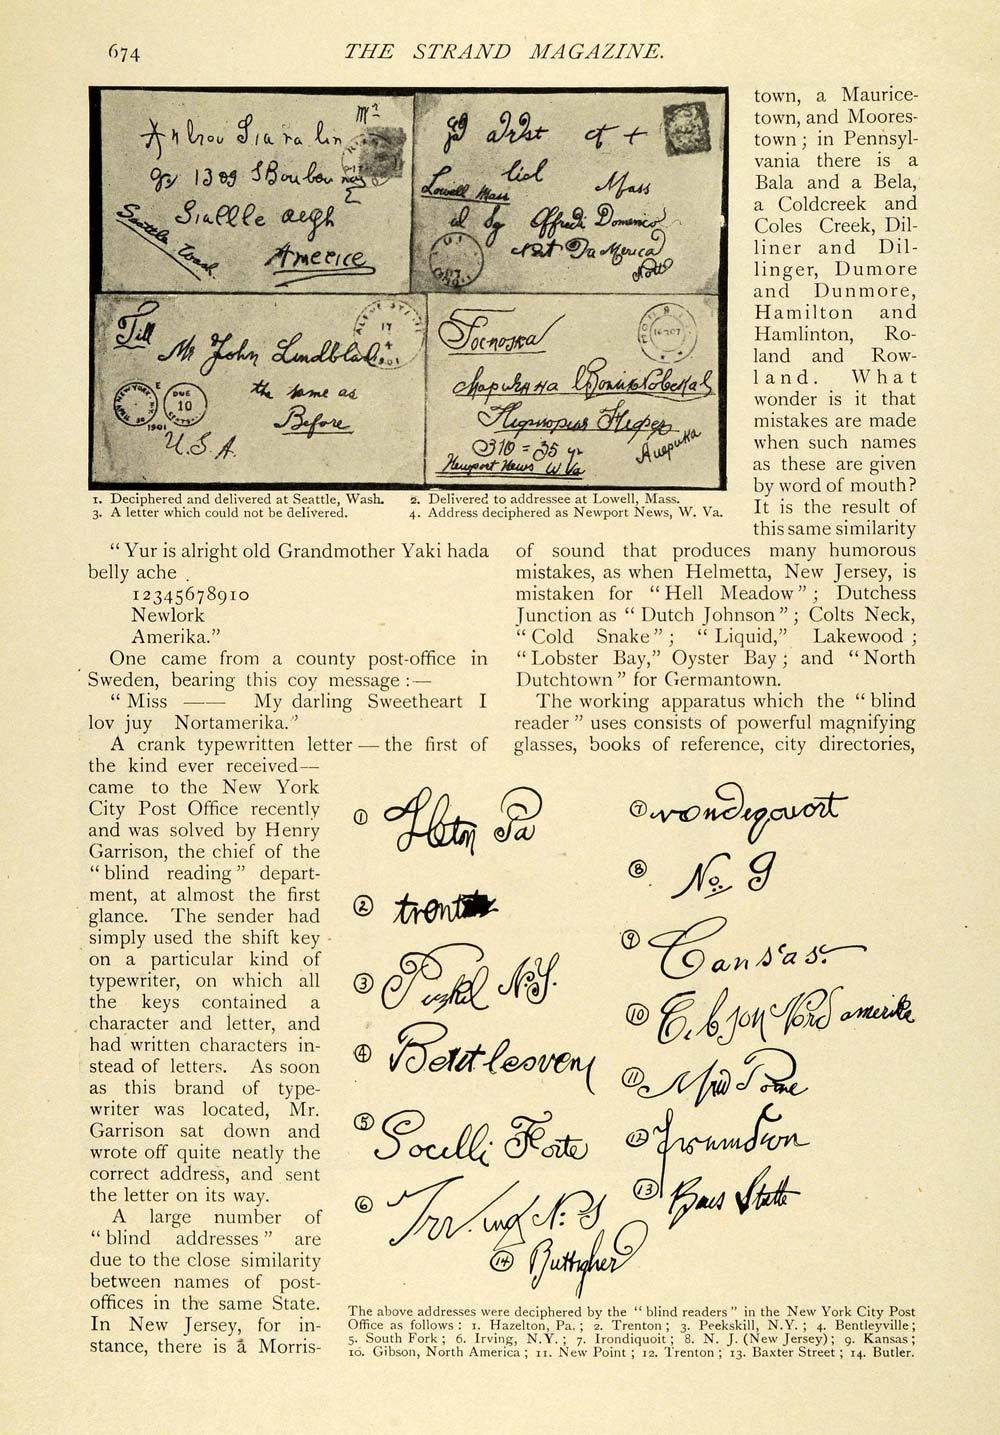 674
THE STRAND MAGAZINE.
1309 S Boubou
Siallle
Seattle Wash.
Ameerice
Lowell Mass
Mass
Offredi Domenico
Till
Mr John Lindblad
the same as
Before
U.S.A.
NEW YORK
DUE
10
1901
Госпожа
310 = 35
Newport News W Va
Америка
1. Deciphered and delivered at Seattle, Wash. 2. Delivered to addressee at Lowell, Mass.
3. A letter which could not be delivered. 4. Address deciphered as Newport News, W. Va.
"Yur is alright old Grandmother Yaki hada
belly ache .
12345678910
Newlork
Amerika."
One came from a county post-office in
Sweden, bearing this coy message :—
"Miss —— My darling Sweetheart I
lov juy Nortamerika."
A crank typewritten letter — the first of
the kind ever received—
came to the New York
City Post Office recently
and was solved by Henry
Garrison, the chief of the
"blind reading" depart-
ment, at almost the first
glance. The sender had
simply used the shift key
on a particular kind of
typewriter, on which all
the keys contained a
character and letter, and
had written characters in-
stead of letters. As soon
as this brand of type-
writer was located, Mr.
Garrison sat down and
wrote off quite neatly the
correct address, and sent
the letter on its way.
A large number of
"blind addresses" are
due to the close similarity
between names of post-
offices in the same State.
In New Jersey, for in-
stance, there is a Morris-
town, a Maurice-
town, and Moores-
town ; in Pennsyl-
vania there is a
Bala and a Bela,
a Coldcreek and
Coles Creek, Dil-
liner and Dil-
linger, Dumore
and Dunmore,
Hamilton and
Hamlinton, Ro-
land and Row-
land. What
wonder is it that
mistakes are made
when such names
as these are given
by word of mouth?
It is the result of
this same similarity
of sound that produces many humorous
mistakes, as when Helmetta, New Jersey, is
mistaken for "Hell Meadow" ; Dutchess
Junction as "Dutch Johnson" ; Colts Neck,
"Cold Snake" ; "Liquid," Lakewood ;
"Lobster Bay," Oyster Bay ; and "North
Dutchtown" for Germantown.
The working apparatus which the "blind
reader" uses consists of powerful magnifying
glasses, books of reference, city directories,
1 Pa
2
3 N.Y.
4 Bettlesveny
5 Socelli Forte
6 Irving N.
7 vondeqouort
8 No. 9
9 Cansas.
10 Cibson Nord amerika
11
12
13 Baes Statte
14 Buttigher
The above addresses were deciphered by the "blind readers" in the New York City Post
Office as follows : 1. Hazelton, Pa. ; 2. Trenton ; 3. Peekskill, N.Y. ; 4. Bentleyville ;
5. South Fork ; 6. Irving, N.Y. ; 7. Irondiquoit ; 8. N. J. (New Jersey) ; 9. Kansas ;
10. Gibson, North America ; 11. New Point ; 12. Trenton ; 13. Baxter Street ; 14. Butler.